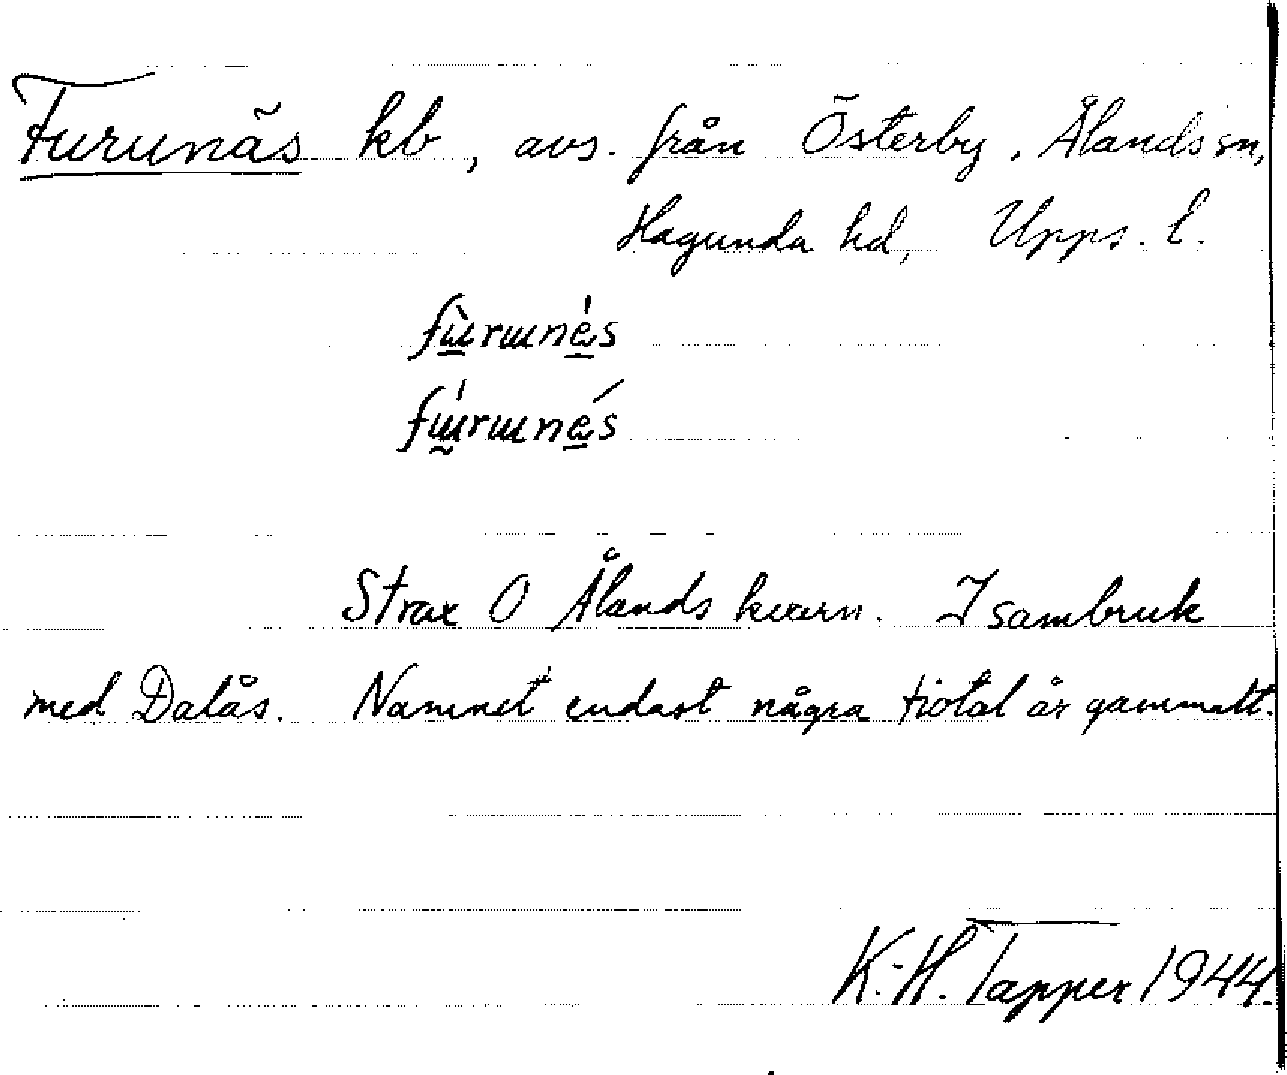 Furunäs kb, avs. från Österby, Ålands sn,
Hagunda hd, Upps. l.
fɯ̀rɯnés
fɯ́rɯnés
Strax O Ålands kvarn. I sambruk
med Dalås. Namnet endast några tiotal år gammalt.
K.-H. Tapper 1944.